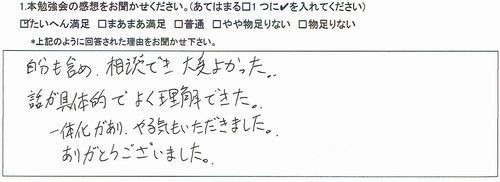 1.本勉強会の感想をお聞かせください。(あてはまる□1つに✔を入れてください)
☑たいへん満足 □まあまあ満足 □普通 □やや物足りない □物足りない
*上記のように回答された理由をお聞かせ下さい。
自分も含め、相談でき 大変よかった。
話が具体的で よく理解できた。
一体化があり、やる気もいただきました。
ありがとうございました。